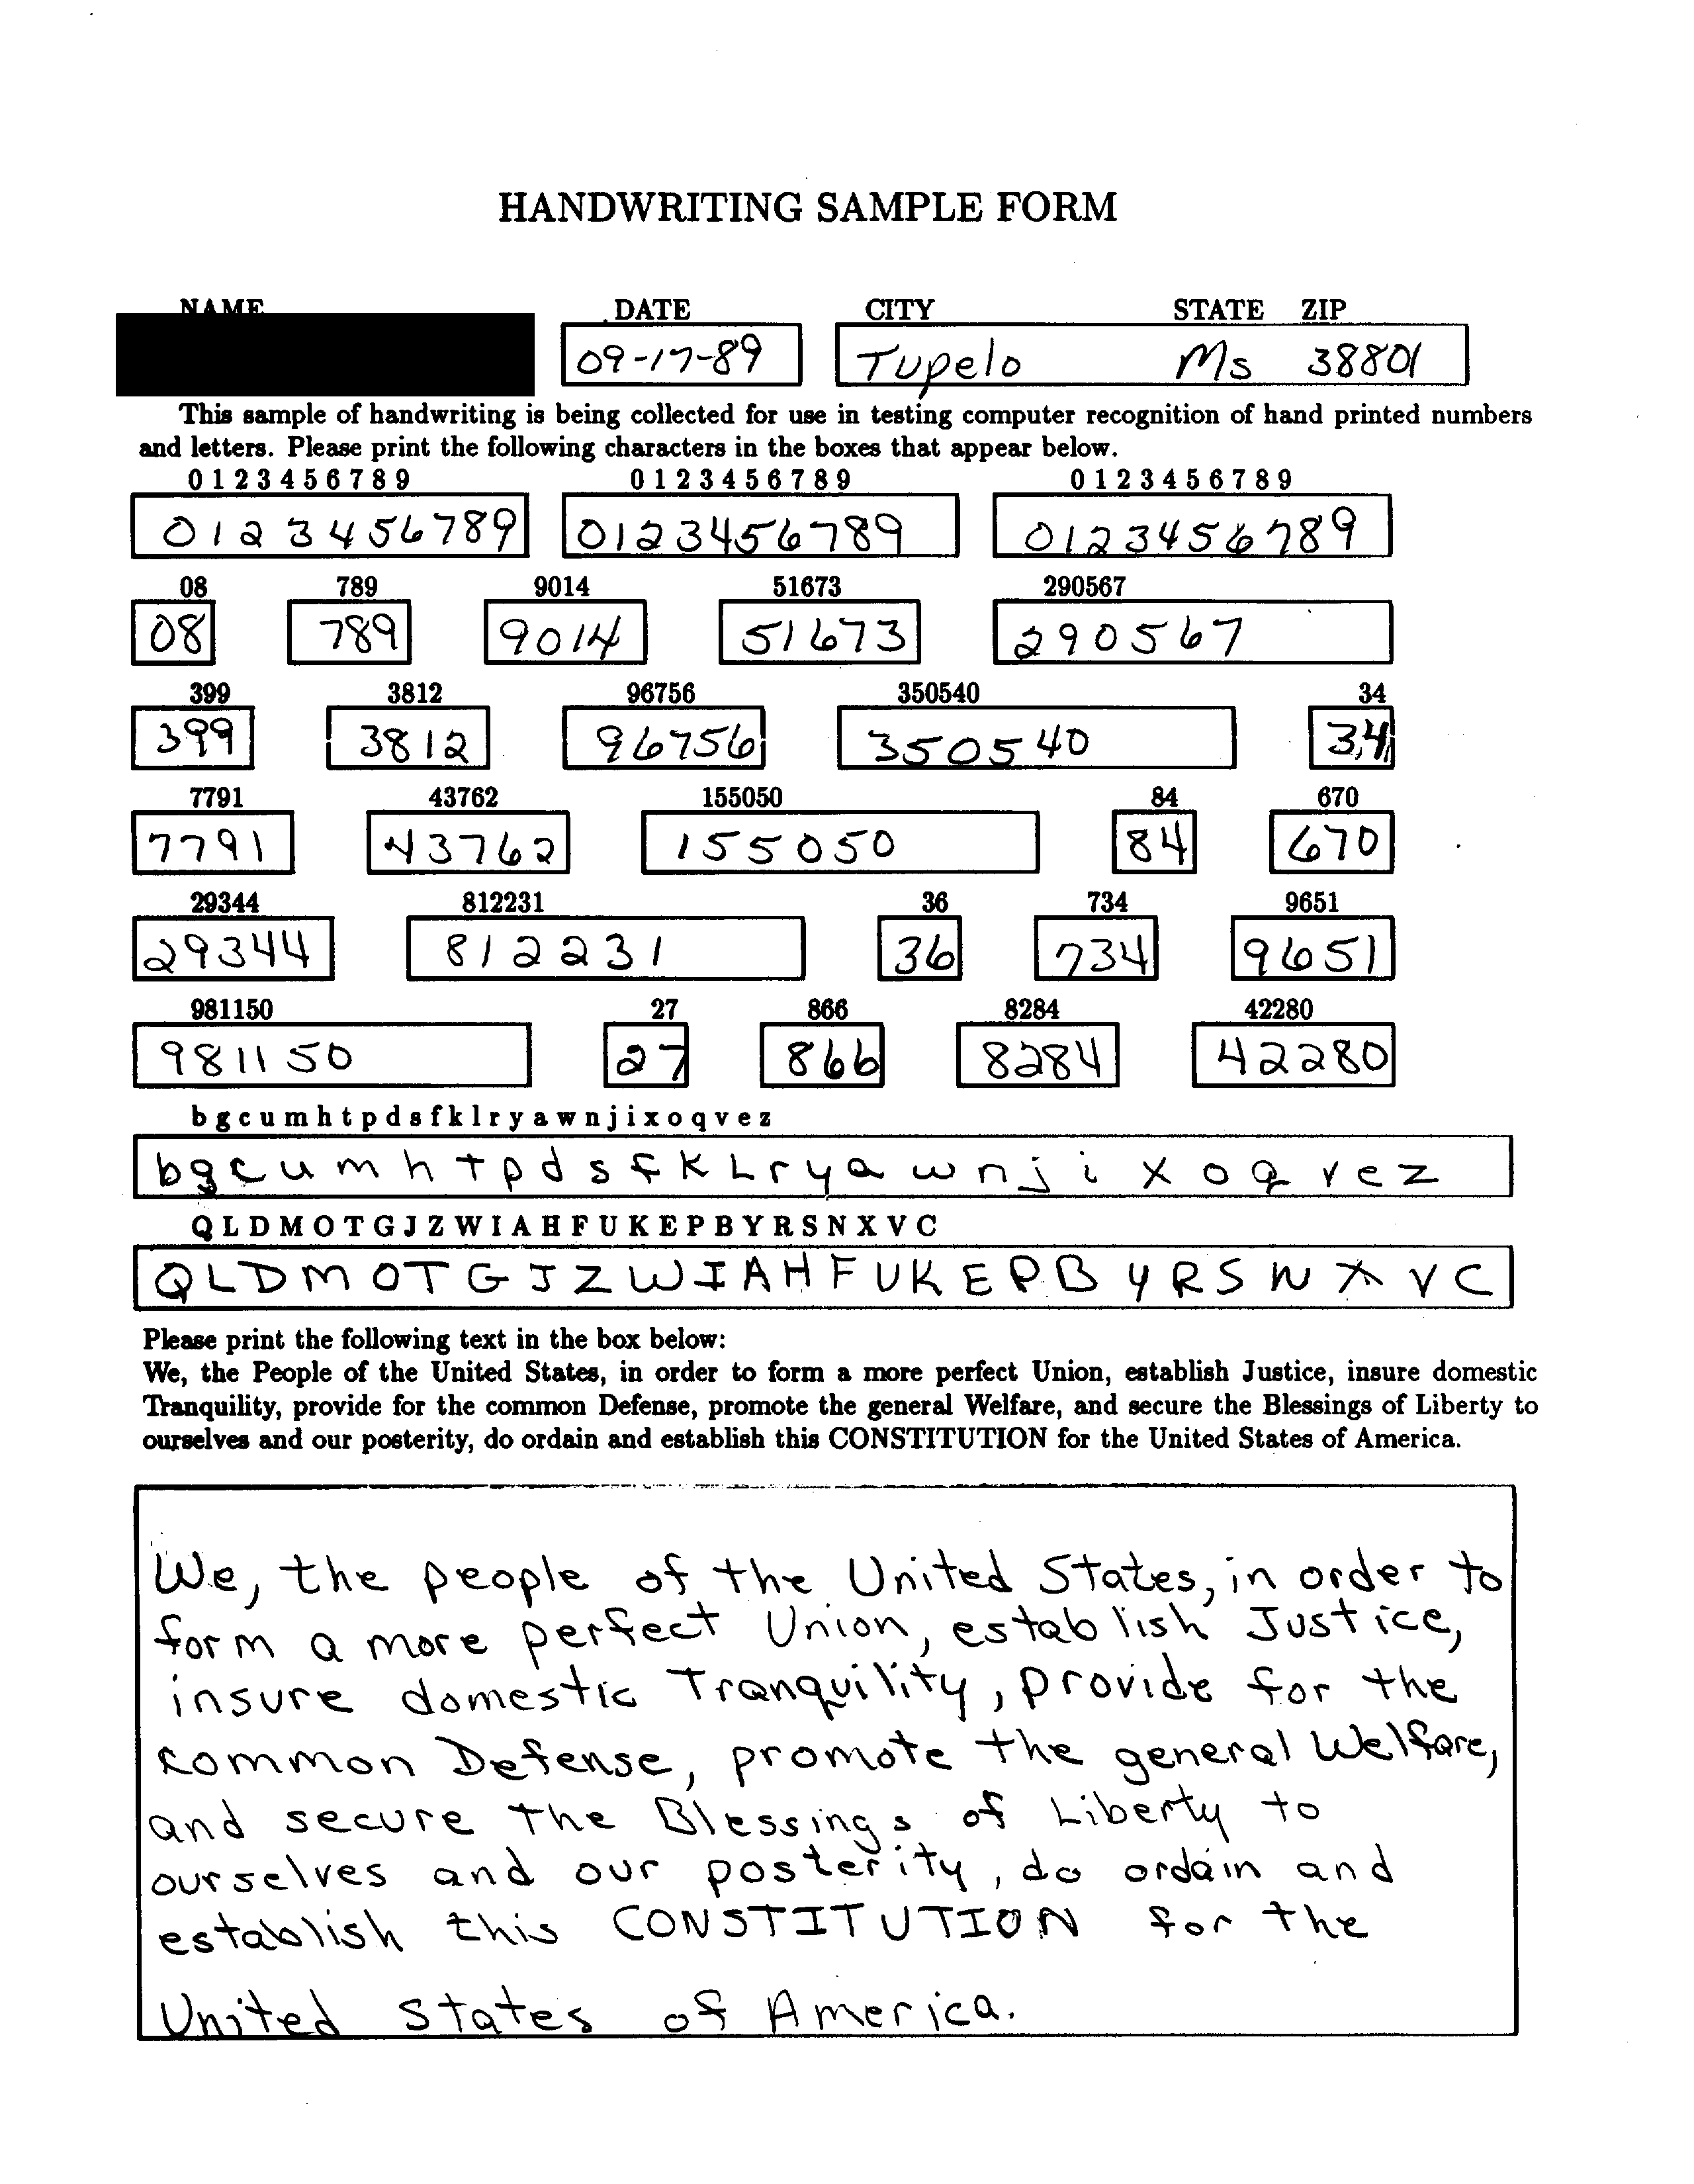 HANDWRITING SAMPLE FORM
NAME DATE CITY STATE ZIP
09-17-89 Tupelo Ms 38801
This sample of handwriting is being collected for use in testing computer recognition of hand printed numbers
and letters. Please print the following characters in the boxes that appear below.
0 1 2 3 4 5 6 7 8 9 0 1 2 3 4 5 6 7 8 9 0 1 2 3 4 5 6 7 8 9
0123456789 0123456789 0123456789
08 789 9014 51673 290567
08 789 9014 51673 290567
399 3812 96756 350540 34
399 3812 96756 350540 34
7791 43762 155050 84 670
7791 43762 155050 84 670
29344 812231 36 734 9651
29344 812231 36 734 9651
981150 27 866 8284 42280
981150 27 866 8284 42280
b g c u m h t p d s f k l r y a w n j i x o q v e z
b g c u m h t p d s f K L r y a w n j i x o q v e z
Q L D M O T G J Z W I A H F U K E P B Y R S N X V C
Q L D M O T G J Z W I A H F U K E P B Y R S N X V C
Please print the following text in the box below:
We, the People of the United States, in order to form a more perfect Union, establish Justice, insure domestic
Tranquility, provide for the common Defense, promote the general Welfare, and secure the Blessings of Liberty to
ourselves and our posterity, do ordain and establish this CONSTITUTION for the United States of America.
We, the people of the United States, in order to
form a more perfect Union, establish Justice,
insure domestic Tranquility, provide for the
common Defense, promote the general Welfare,
and secure the Blessings of Liberty to
ourselves and our posterity, do ordain and
establish this CONSTITUTION for the
United States of America.